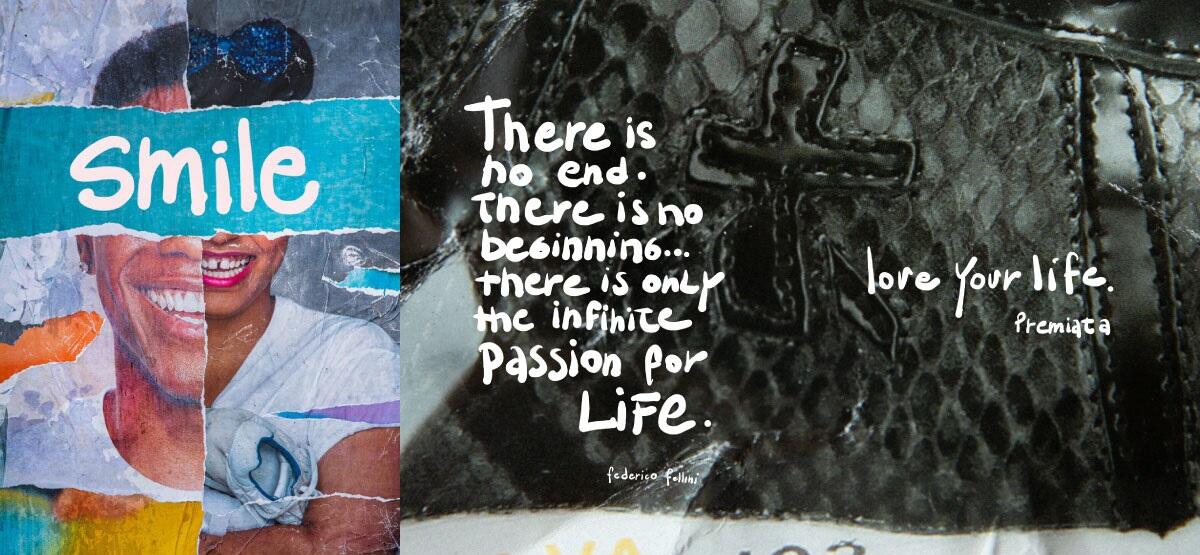 smile
There is
no end.
there is no
beginning...
there is only
the infinite
passion for
LiFe.
federico fellini
love your life.
Premiata